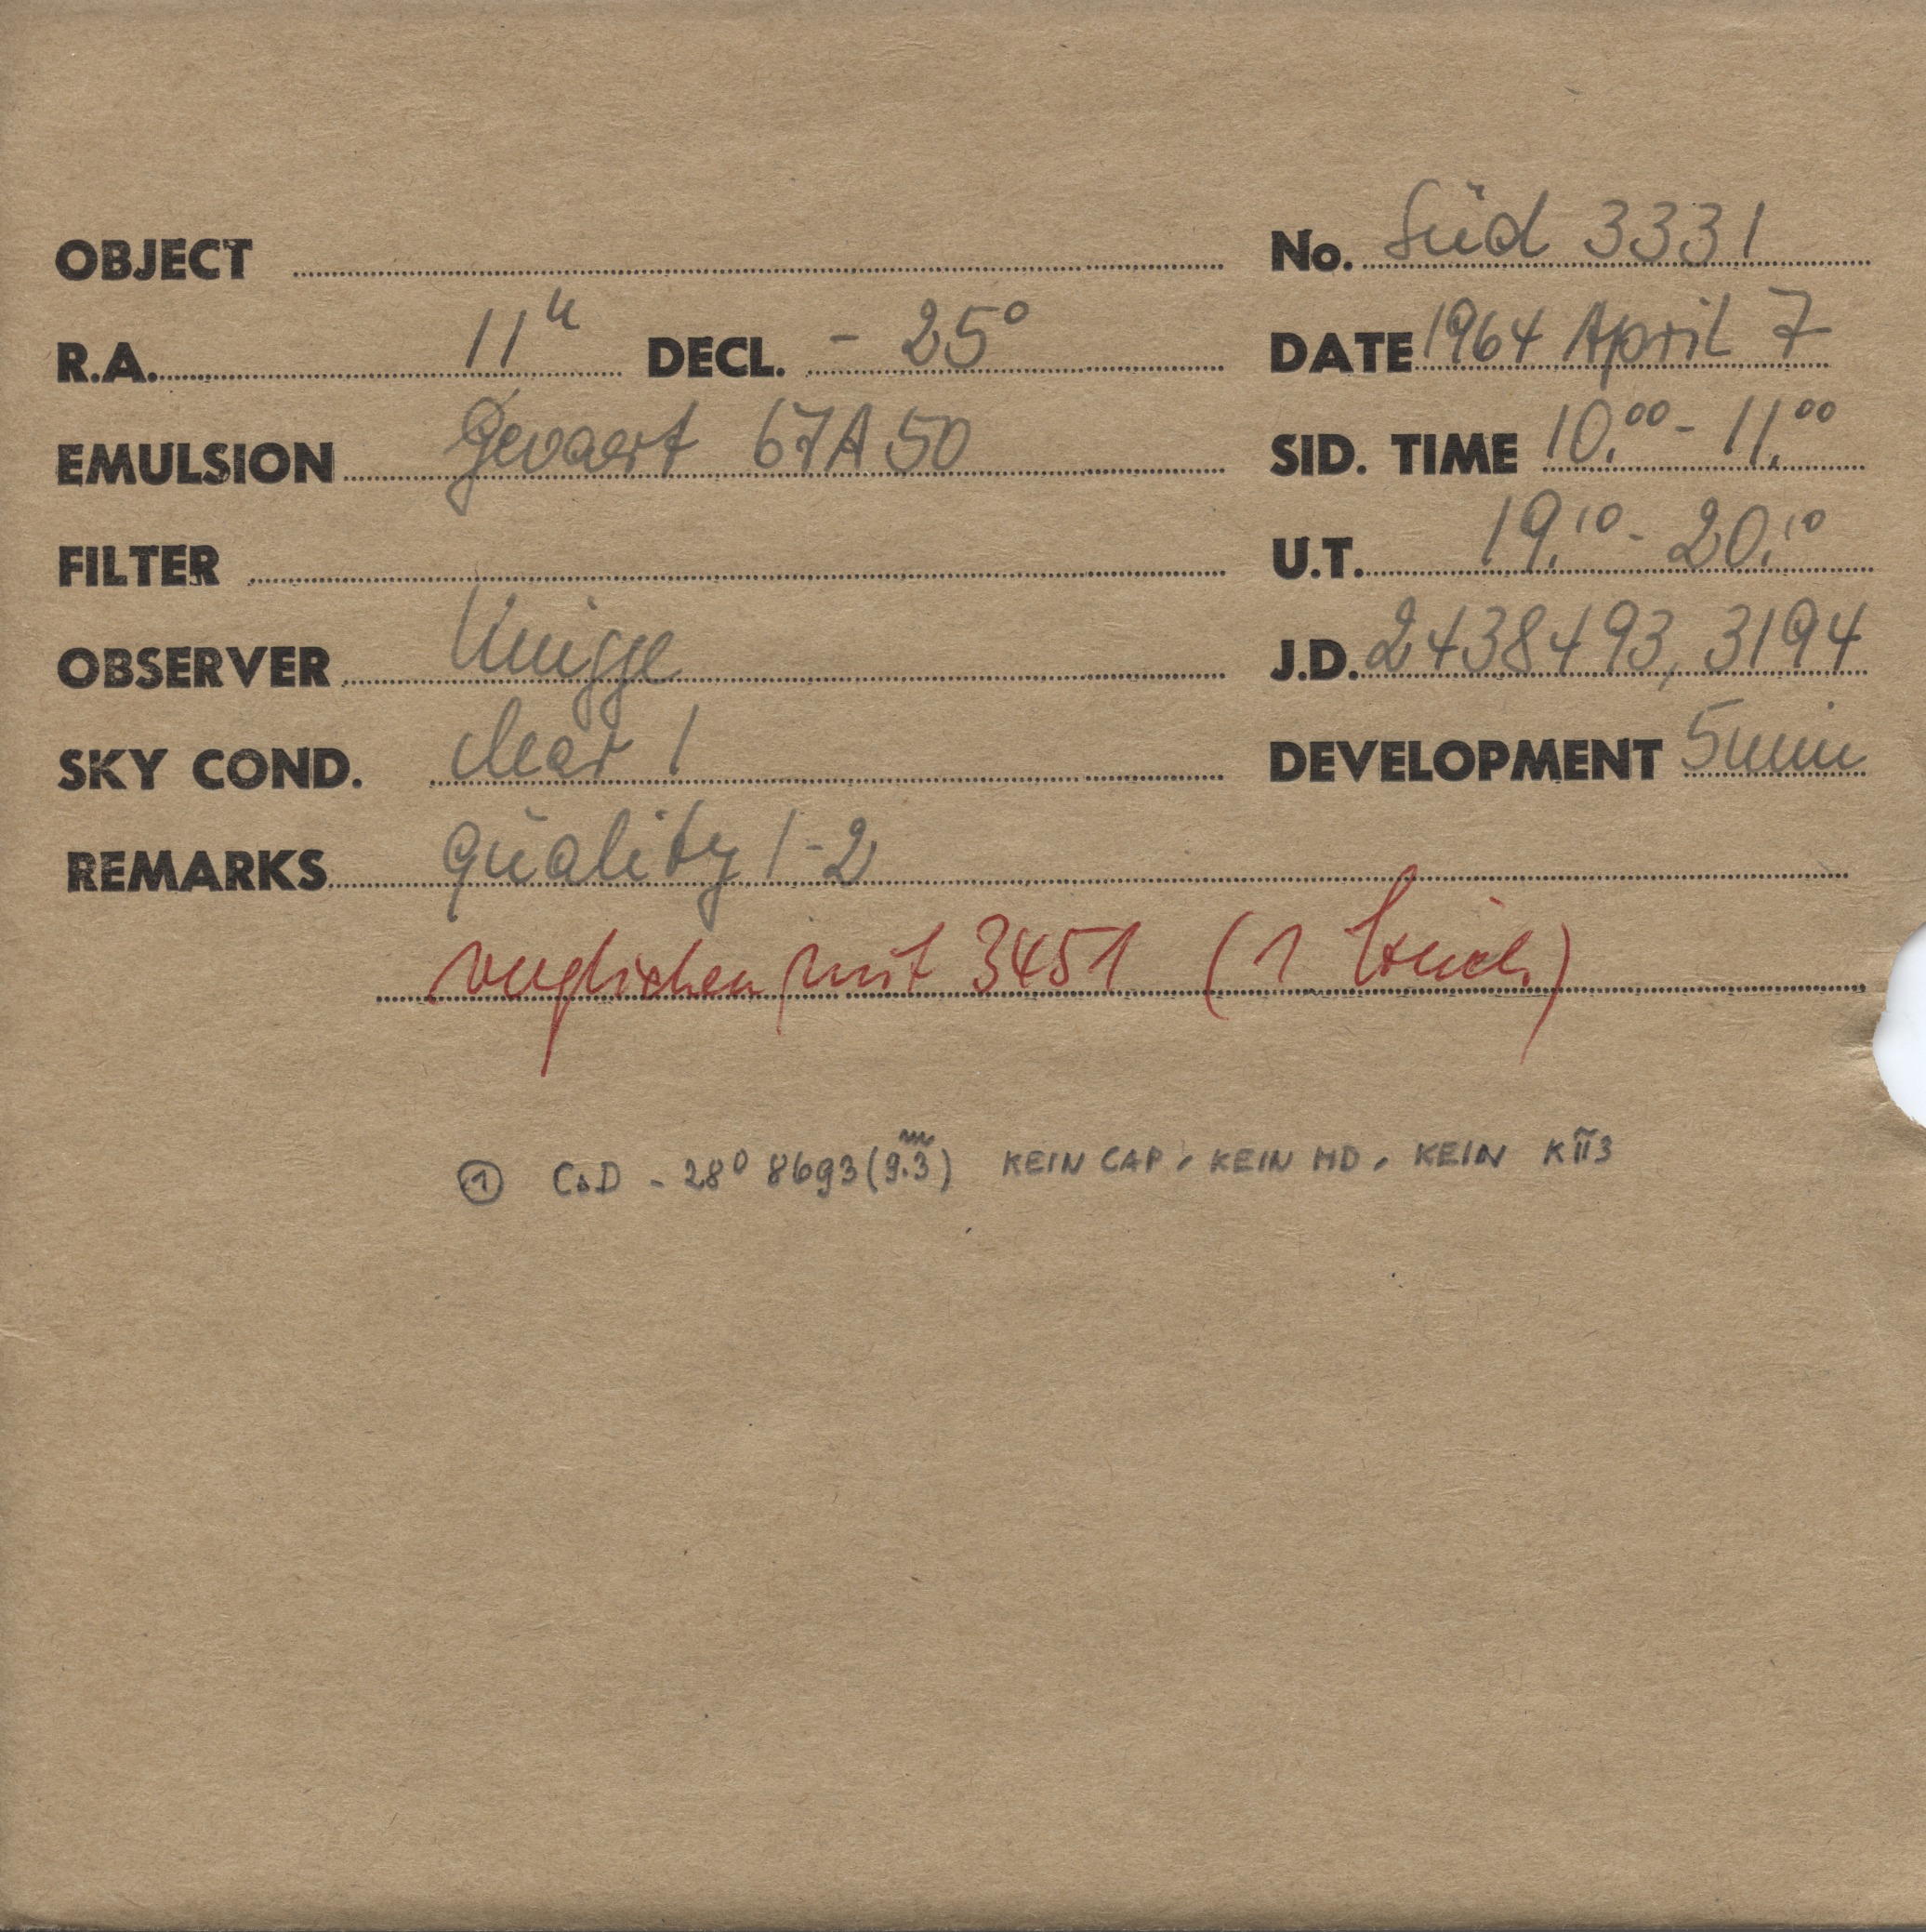 OBJECT No. Süd 3331
R.A. 11h DECL. - 25° DATE 1964 April 7
EMULSION Gevaert 67A50 SID. TIME 10.00 - 11.00
FILTER U.T. 19.10 - 20.10
OBSERVER Knigge J.D. 2438493,3194
SKY COND. clear 1 DEVELOPMENT 5 min
REMARKS quality 1-2
verglichen mit 3451 (1
① CoD - 28° 8693 (9.3m) KEIN CAP, KEIN HD, KEIN KII3